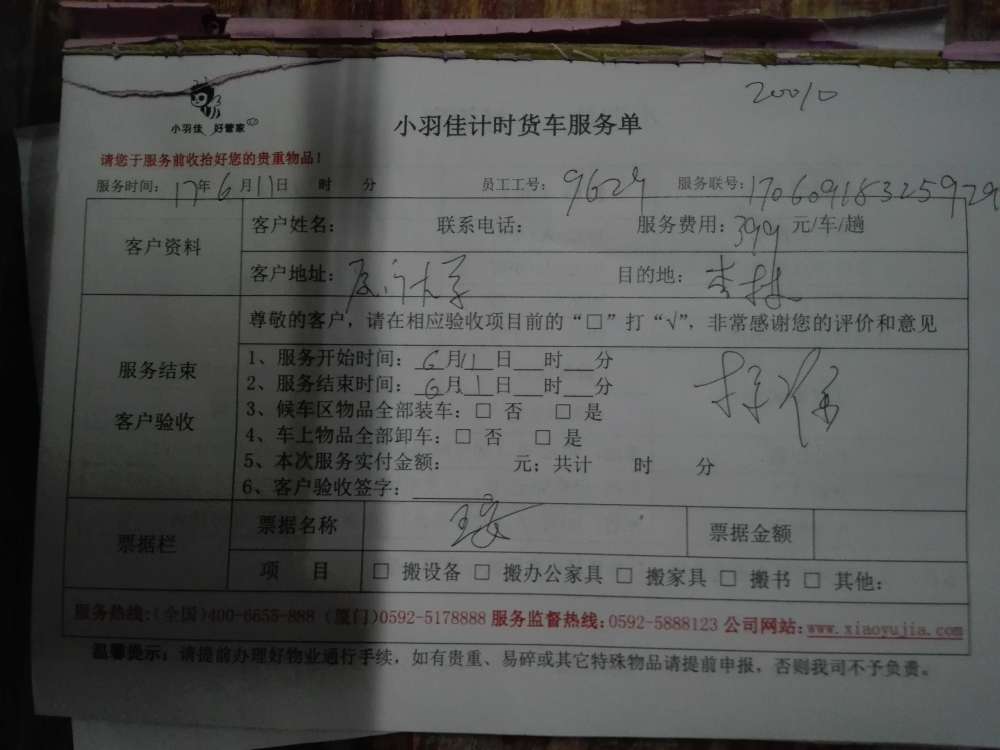 20010
小羽佳 好管家
小羽佳计时货车服务单
请您于服务前收拾好您的贵重物品!
服务时间: 17年6月11日 时 分 员工工号: 9629 服务联号: 17060918325929
客户资料
客户姓名: 联系电话: 服务费用: 399 元/车/趟
客户地址: 厦门大学 目的地: 杏林
服务结束
客户验收
尊敬的客户,请在相应验收项目前的“□”打“√”,非常感谢您的评价和意见
1、服务开始时间: 6月11日 时 分
2、服务结束时间: 6月1日 时 分
3、候车区物品全部装车: □ 否 □ 是
4、车上物品全部卸车: □ 否 □ 是
5、本次服务实付金额: 元; 共计 时 分
6、客户验收签字:
票据栏
票据名称 票据金额
项 目 □ 搬设备 □ 搬办公家具 □ 搬家具 □ 搬书 □ 其他:
服务热线:(全国)400-6655-888 (厦门)0592-5178888 服务监督热线: 0592-5888123 公司网站: www.xiaoyujia.com
温馨提示: 请提前办理好物业通行手续, 如有贵重、易碎或其它特殊物品请提前申报, 否则我司不予负责。